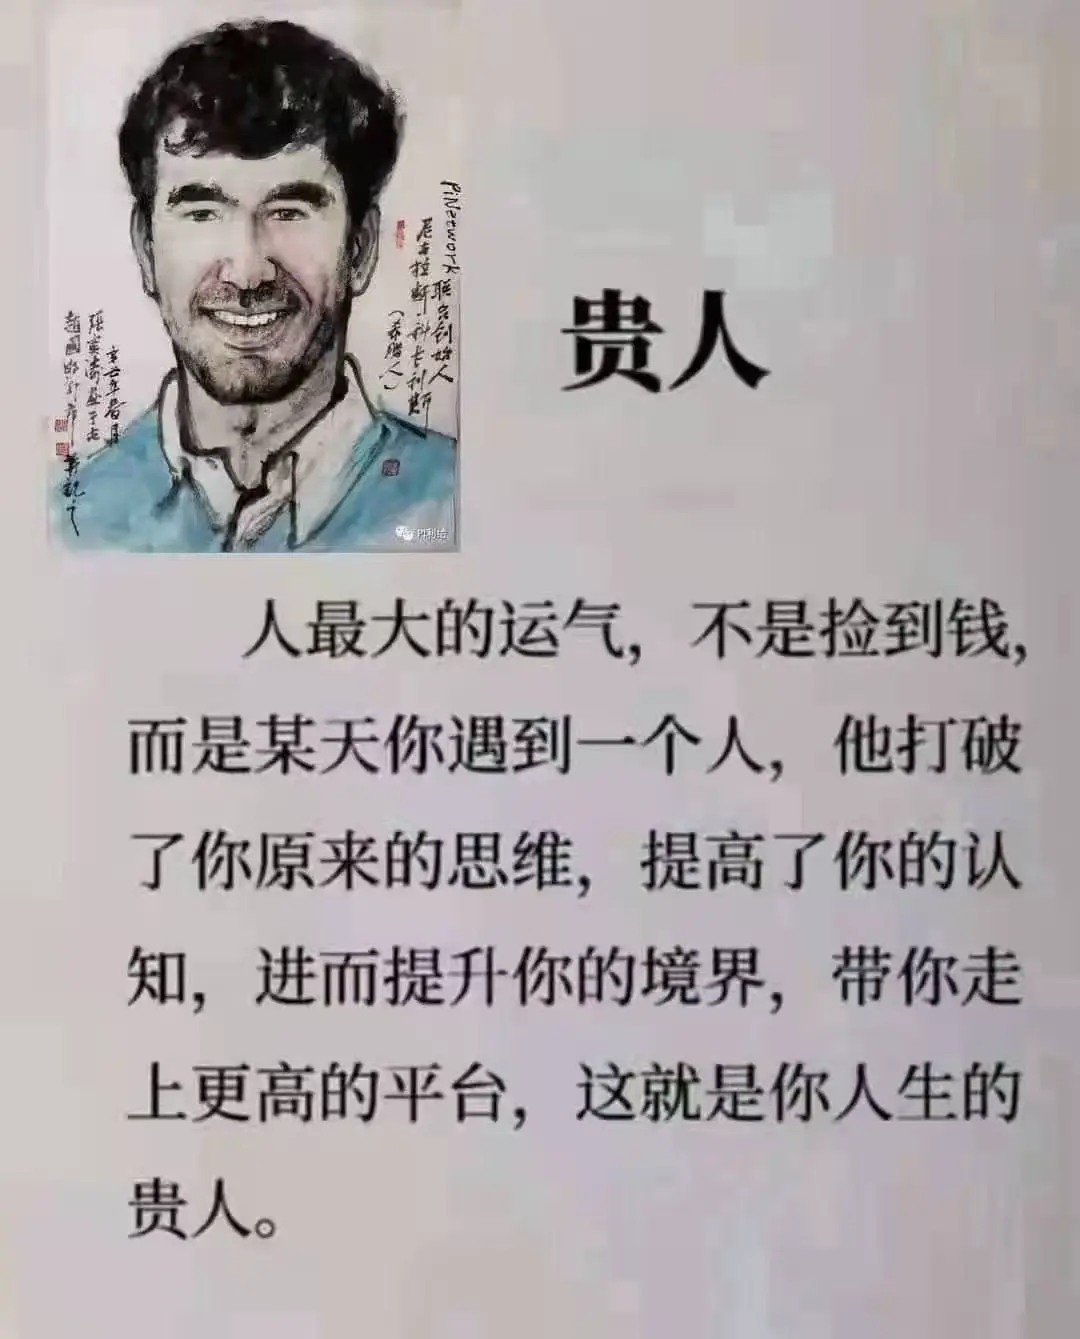 PiNetwork 联合创始人
尼古拉斯·科卡利斯
(希腊人)
辛丑年春月
贵人
人最大的运气，不是捡到钱，
而是某天你遇到一个人，他打破
了你原来的思维，提高了你的认
知，进而提升你的境界，带你走
上更高的平台，这就是你人生的
贵人。